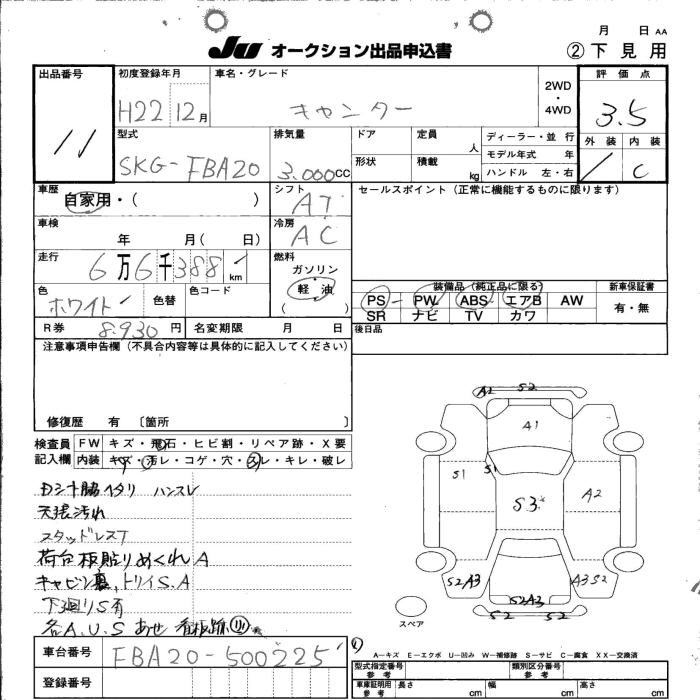 月 日 AA
JU オークション出品申込書 ②下見用
出品番号 初度登録年月 車名・グレード 2WD・4WD 評価点
11 H22 12月 キャンター 3.5
型式 排気量 ドア 定員 人 ディーラー・並行 外装 内装
SKG-FBA20 3.000CC 形状 積載 kg モデル年式 年 / C
ハンドル 左・右
車歴 シフト セールスポイント(正常に機能するものに限ります)
自家用・( ) AT
車検 冷房
年 月( 日) AC
走行 燃料
6万6千388km ガソリン
軽油
( )
装備品(純正品に限る) 新車保証書
色 色替 色コード
ホワイト
PS PW ABS エアB AW 有・無
SR ナビ TV カワ
R券 8.930円 名変期限 月 日 後日品
注意事項申告欄(不具合内容等は具体的に記入してください)
修復歴 有 〔箇所 〕
検査員 FW キズ・飛石・ヒビ割・リペア跡・X要
記入欄 内装 キズ・汚レ・コゲ・穴・スレ・キレ・破レ
ハンスレ
天張汚れ
スタッドレスT
荷台板貼りめくれA
キャビン裏、トリイS.A
下廻りS有
各A.U.S あせ 看板跡
A2 S2
A1
S1 S1 S3 A2
S2A3 A3S2
S2A3
S2 S2
スペア
A-キズ E-エクボ U-凹み W-補修跡 S-サビ C-腐食 XX-交換済
車台番号 FBA20-500225
型式指定番号 参考 類別区分番号 参考
登録番号
車庫証明用 参考 長さ cm 幅 cm 高さ cm